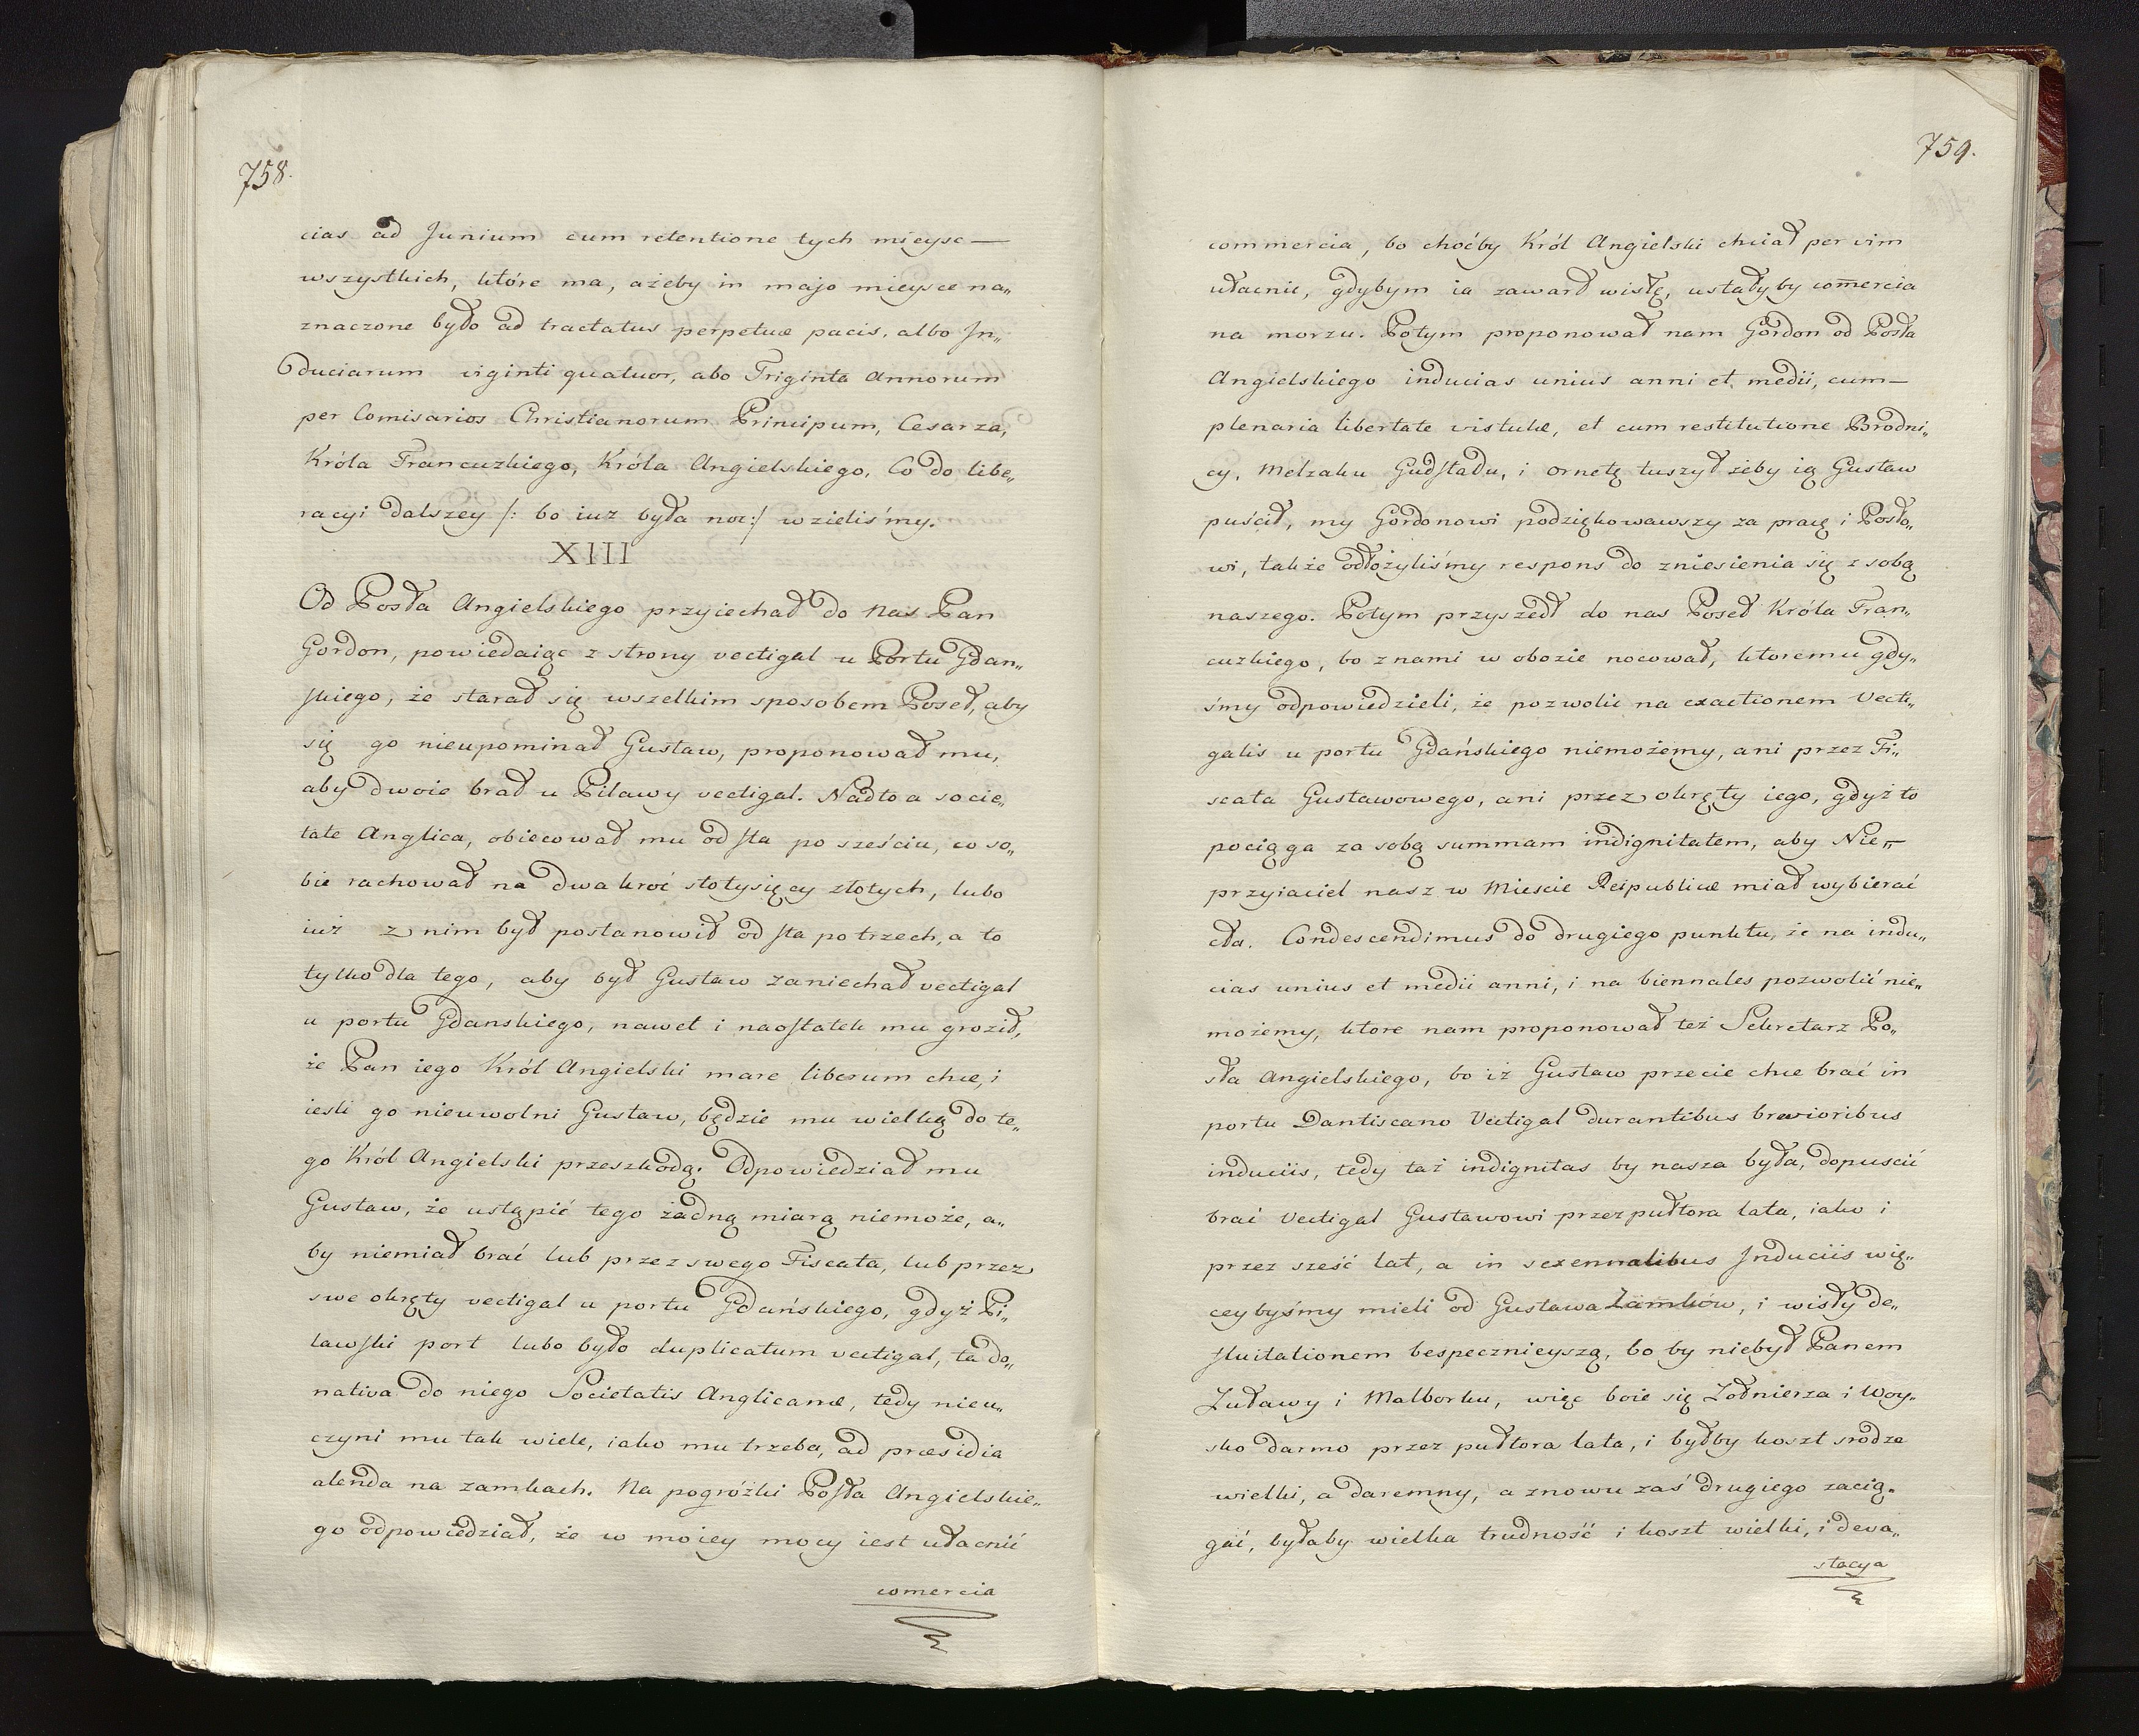 758.
cias ad Junium cum retentione tych mieysc—
wszystkich, które ma, ażeby in majo mieysce na„
znaczone było ad tractatus perpetuæ pacis, albo In„
duciarum viginti quatuor, abo Triginta Annorum
per Comisarios Christianorum Principum, Cesarza,
Króla Francuzkiego, Króla Angielskiego. Co do libe„
racyi dalszey /: bo iuż była noc :/ wzieliśmy.
XIII
Od Posła Angielskiego przyiechał do nas Pan
Gordon, powiedaiąc z strony vectigal u Portu Gdan„
skiego, że starał się wszelkim sposobem Poseł, aby
się go nieupominał Gustaw, proponował mu,
aby dwoie brał u Pilawy vectigal. Nadto a socie„
tate Anglica, obiecował mu od sta po sześciu, co so„
bie rachował na dwakroć stotysięcy złotych, lubo
iuż z nim był postanowił od sta po trzech, a to
tylko dla tego, aby był Gustaw zaniechał vectigal
u portu Gdanskiego, nawet i naostatek mu groził,
że Pan iego Król Angielski mare liberum chce, i
iesli go nieuwolni Gustaw, będzie mu wielką do te„
go Król Angielski przeszkodą. Odpowiedział mu
Gustaw, że ustąpić tego żadną miarą niemoże, a„
by niemiał brać lub przez swego Fiscata, lub przez
swe okręty vectigal u portu Gdańskiego, gdyż Pi„
lawski port lubo było duplicatum vectigal, ta do„
nativa do niego Societatis Anglicanæ, tedy nieu„
czyni mu tak wiele, iako mu trzeba, ad præsidia
alenda na zamkach. Na pogróżki Posła Angielskie„
go odpowiedział, że w moiey mocy iest ułacnić
comercia
759.
commercia, bo choćby Król Angielski chciał per vim
ułacnić, gdybym ia zawarł wisłę, ustałyby com̄ercia
na morzu. Potym proponował nam Gordon od Posła
Angielskiego inducias unius anni et medii, cum—
plenaria libertate vistulæ, et cum restitutione Brodni„
cy, Melzaku Gudstadu, i ornetę tuszył żeby ią Gustaw
puścił, my Gordonowi podziękowawszy za pracę i Posło„
wi, także odłożyliśmy respons do zniesienia się z sobą
naszego. Potym przyszedł do nas Poseł Króla Fran„
cuzkiego, bo z nami w obozie nocował, ktoremu gdy„
śmy odpowiedzieli, że pozwolić na exactionem Vecti„
galis u portu Gdańskiego niemożemy, ani przez Fi„
scata Gustawowego, ani przez okręty iego, gdyż to
pociąga za sobą summam indignitatem, aby Nie„
przyiaciel nasz w Miescie Reipublicæ miał wybierać
cła. Condescendimus do drugiego punktu, że na indu„
cias unius et medii anni, i na biennales pozwolić nie„
możemy, ktore nam proponował też Sekretarz Po„
sła Angielskiego, bo iż Gustaw przecie chce brać in
portu Dantiscano Vectigal durantibus brevioribus
induciis, tedy taż indignitas by nasza była, dopuscić
brać Vectigal Gustawowi przez pułtora lata, iako i
przez sześć lat, a in sexennalibus Induciis wię„
ceybyśmy mieli od Gustawa Zamków, i wisły de„
fluitationem bespecznieyszą, bo by niebył Panem
Żuławy i Malborku, więc boie się Żołnierza i Woy„
sko darmo przez pułtora lata, i byłby koszt srodze
wielki, a daremny, a znowu zaś drugiego zacią„
gać, byłaby wielka trudność i koszt wielki, i deva„
stacya